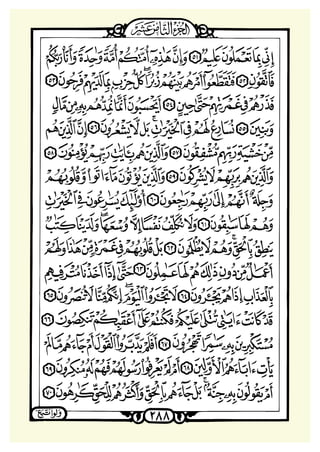 الجزء الثامن عشر
إِنِّي بِمَا تَعْمَلُونَ عَلِيمٌ ٥١ وَإِنَّ هَٰذِهِ أُمَّتُكُمْ أُمَّةً وَاحِدَةً وَأَنَا رَبُّكُمْ
فَاتَّقُونِ ٥٢ فَتَقَطَّعُوا أَمْرَهُم بَيْنَهُمْ زُبُرًا كُلُّ حِزْبٍ بِمَا لَدَيْهِمْ فَرِحُونَ ٥٣
فَذَرْهُمْ فِي غَمْرَتِهِمْ حَتَّىٰ حِينٍ ٥٤ أَيَحْسَبُونَ أَنَّمَا نُمِدُّهُم بِهِ مِن مَّالٍ
وَبَنِينَ ٥٥ نُسَارِعُ لَهُمْ فِي الْخَيْرَاتِ بَل لَّا يَشْعُرُونَ ٥٦ إِنَّ الَّذِينَ هُم
مِّنْ خَشْيَةِ رَبِّهِم مُّشْفِقُونَ ٥٧ وَالَّذِينَ هُم بِآيَاتِ رَبِّهِمْ يُؤْمِنُونَ ٥٨
وَالَّذِينَ هُم بِرَبِّهِمْ لَا يُشْرِكُونَ ٥٩ وَالَّذِينَ يُؤْتُونَ مَا آتَوا وَّقُلُوبُهُمْ
وَجِلَةٌ أَنَّهُمْ إِلَىٰ رَبِّهِمْ رَاجِعُونَ ٦٠ أُولَٰئِكَ يُسَارِعُونَ فِي الْخَيْرَاتِ
وَهُمْ لَهَا سَابِقُونَ ٦١ وَلَا نُكَلِّفُ نَفْسًا إِلَّا وُسْعَهَا وَلَدَيْنَا كِتَابٌ
يَنطِقُ بِالْحَقِّ وَهُمْ لَا يُظْلَمُونَ ٦٢ بَلْ قُلُوبُهُمْ فِي غَمْرَةٍ مِّنْ هَٰذَا وَلَهُمْ
أَعْمَالٌ مِّن دُونِ ذَٰلِكَ هُمْ لَهَا عَامِلُونَ ٦٣ حَتَّىٰ إِذَا أَخَذْنَا مُتْرَفِيهِم
بِالْعَذَابِ إِذَا هُمْ يَجْأَرُونَ ٦٤ لَا تَجْأَرُوا الْيَوْمَ إِنَّكُم مِّنَّا لَا تُنصَرُونَ ٦٥
قَدْ كَانَتْ آيَاتِي تُتْلَىٰ عَلَيْكُمْ فَكُنتُمْ عَلَىٰ أَعْقَابِكُمْ تَنكِصُونَ ٦٦
مُسْتَكْبِرِينَ بِهِ سَامِرًا تَهْجُرُونَ ٦٧ أَفَلَمْ يَدَّبَّرُوا الْقَوْلَ أَمْ جَاءَهُم مَّا لَمْ
يَأْتِ آبَاءَهُمُ الْأَوَّلِينَ ٦٨ أَمْ لَمْ يَعْرِفُوا رَسُولَهُمْ فَهُمْ لَهُ مُنكِرُونَ ٦٩
أَمْ يَقُولُونَ بِهِ جِنَّةٌ بَلْ جَاءَهُم بِالْحَقِّ وَأَكْثَرُهُمْ لِلْحَقِّ كَارِهُونَ ٧٠
٢٨٨
ولو اتبع